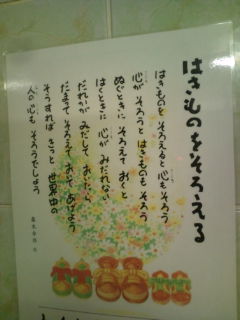 はきものをそろえる
はきものを そろえると 心も そろう
心が そろうと はきものも そろう
ぬぐときに そろえて おくと
はくときに 心が みだれない
だれかが みだして おいたら
だまって そろえて おいて あげよう
そうすれば きっと 世界中の
人の心も そろうでしょう